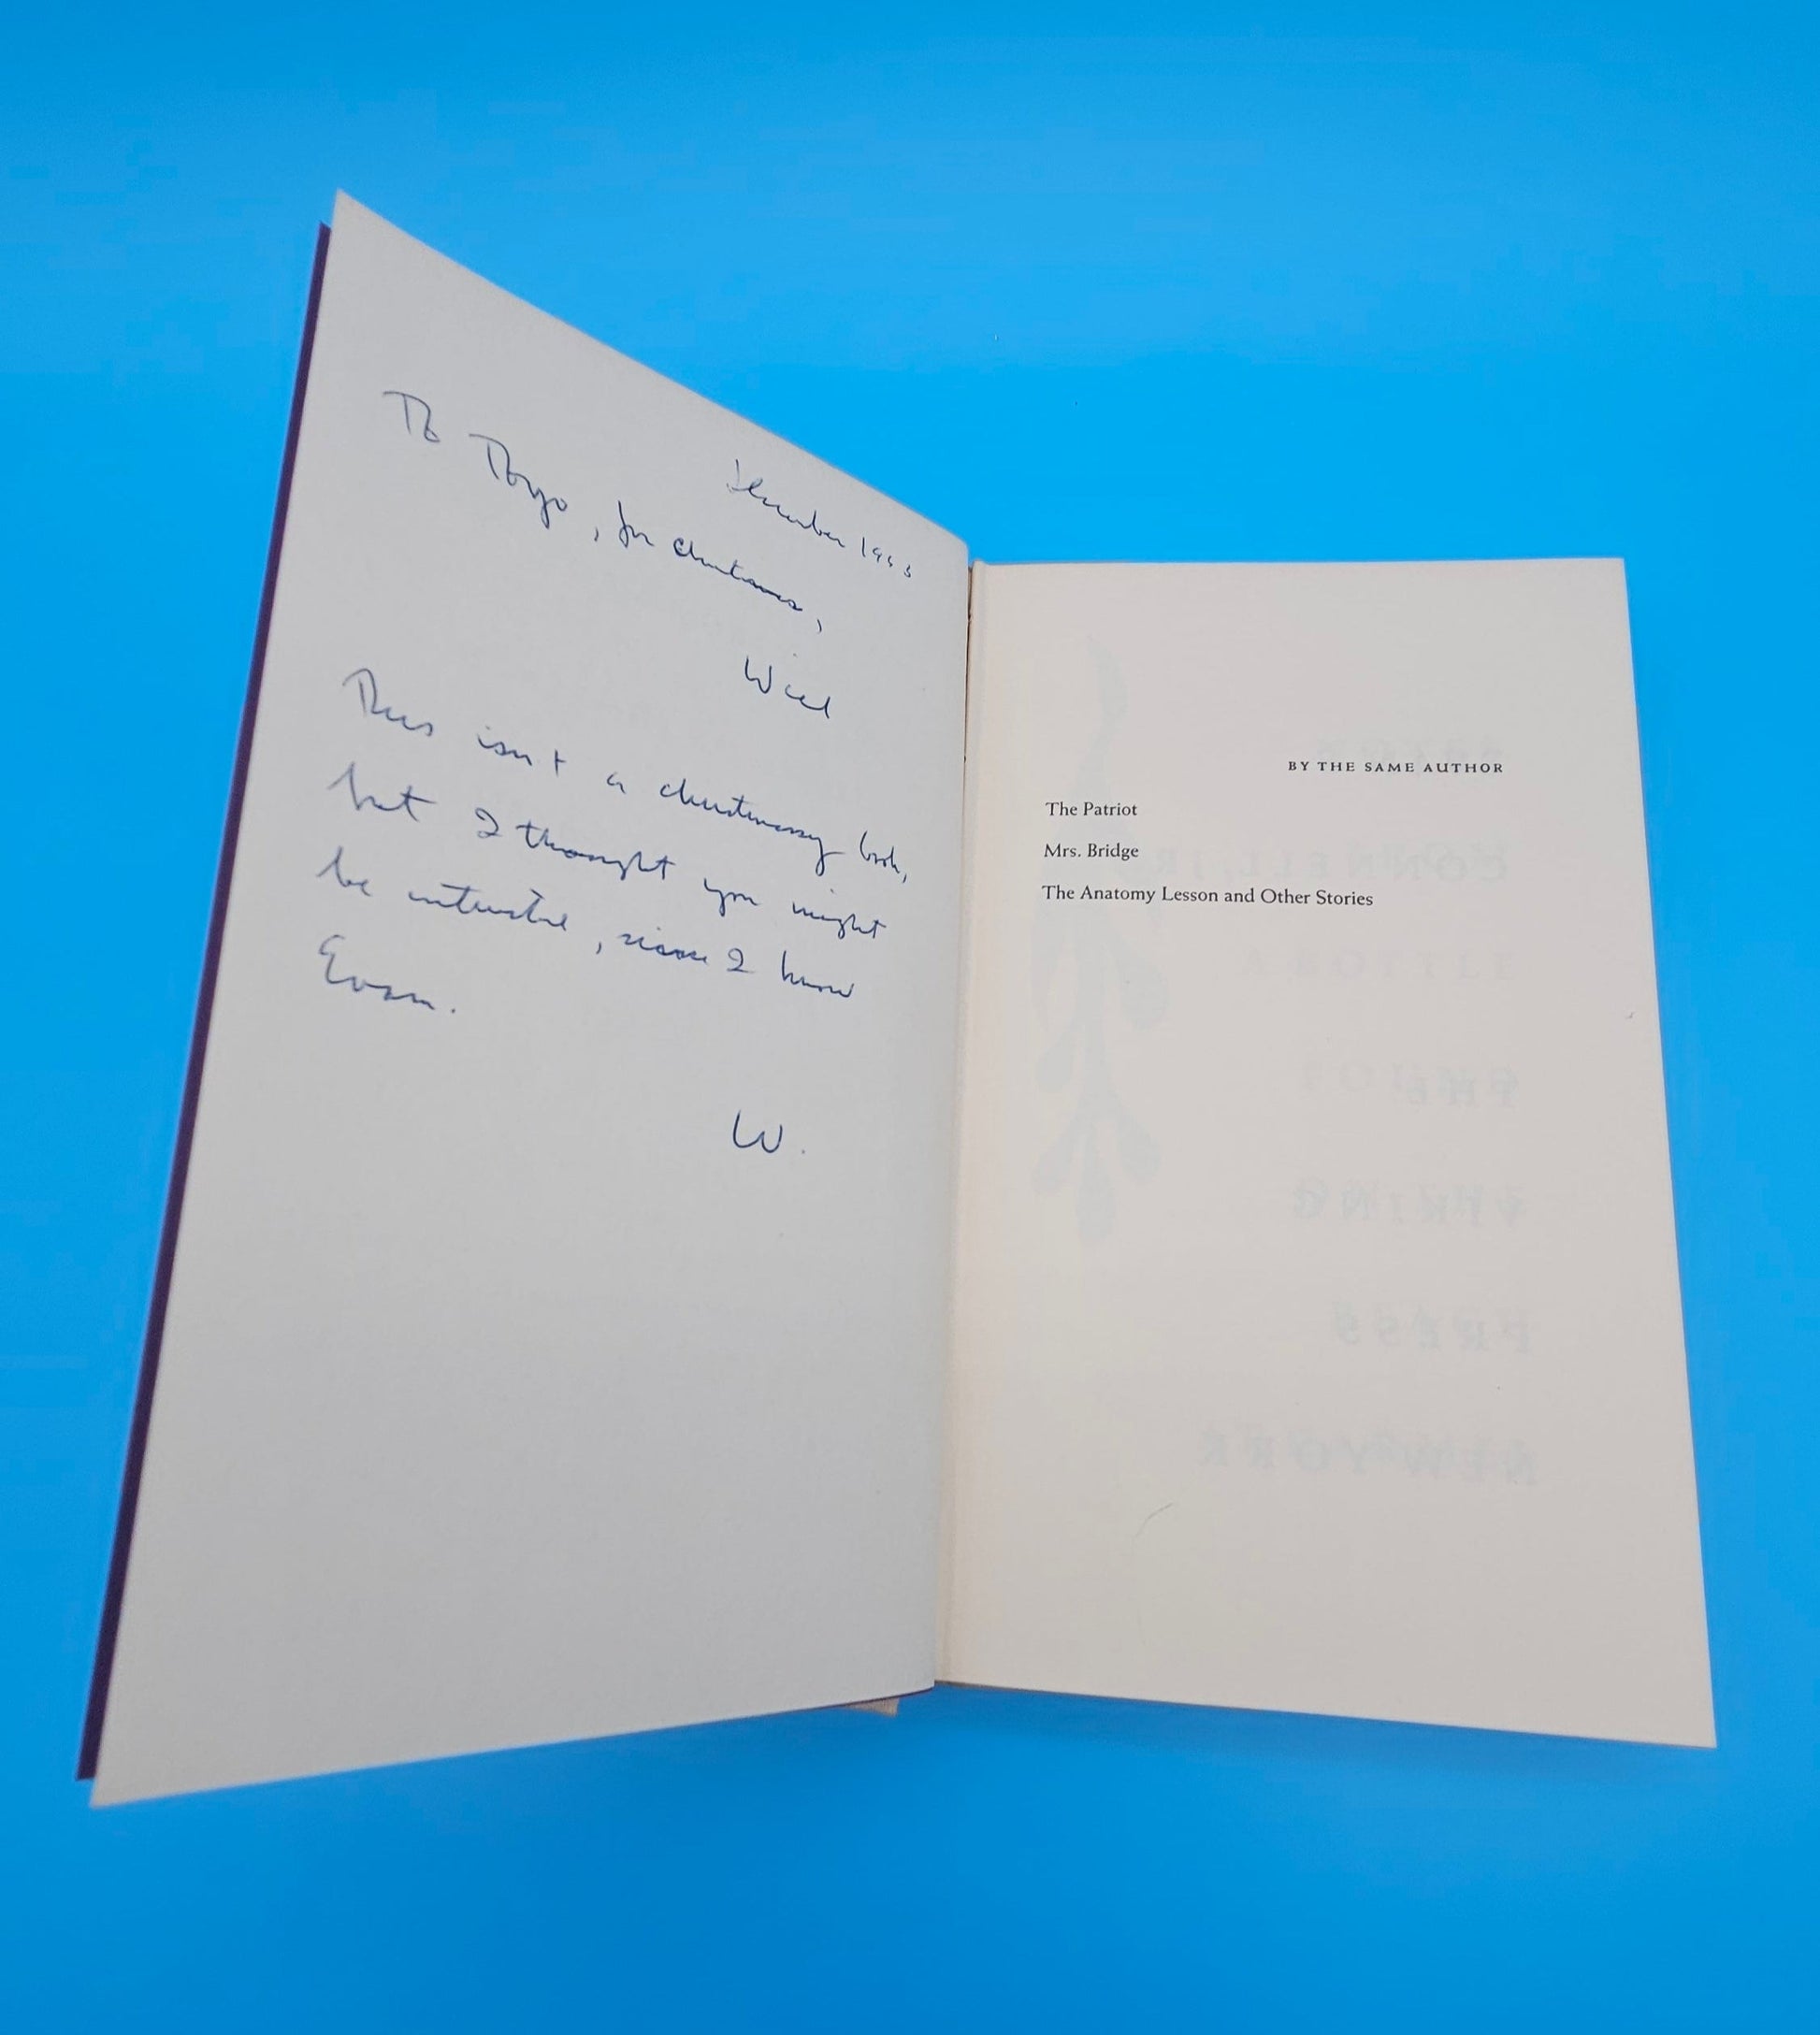 December 1963
To Tonyo, for christmas,
Will
This isn't a christmassy book,
but I thought you might
be interested, since I know
Evan.
W.
BY THE SAME AUTHOR
The Patriot
Mrs. Bridge
The Anatomy Lesson and Other Stories